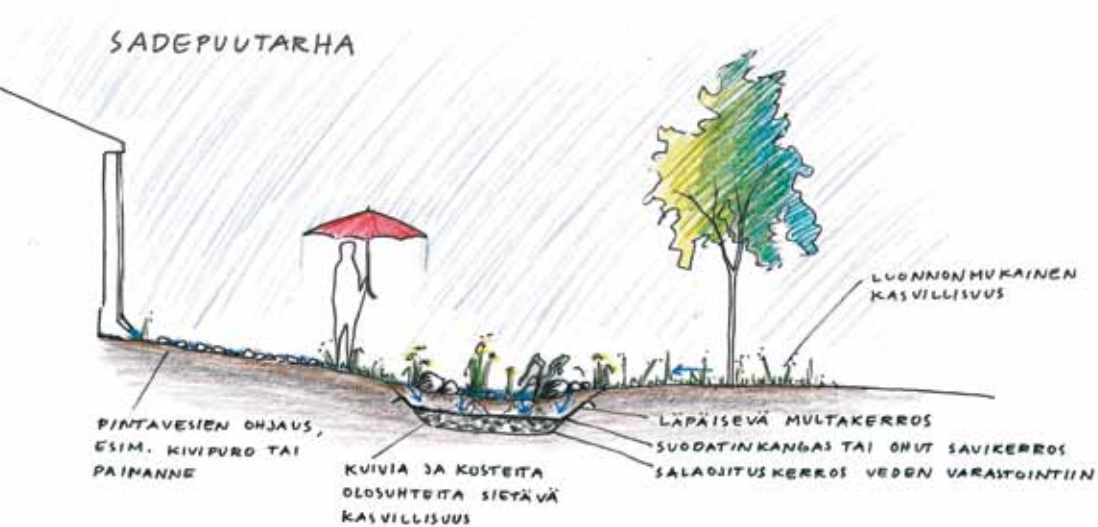 SADEPUUTARHA
LUONNONMUKAINEN
KASVILLISUUS
PINTAVESIEN OHJAUS,
ESIM. KIVIPURO TAI
PAINANNE
KUIVIA JA KOSTEITA
OLOSUHTEITA SIETÄVÄ
KASVILLISUUS
LÄPÄISEVÄ MULTAKERROS
SUODATINKANGAS TAI OHUT SAVIKERROS
SALAOJITUSKERROS VEDEN VARASTOINTIIN